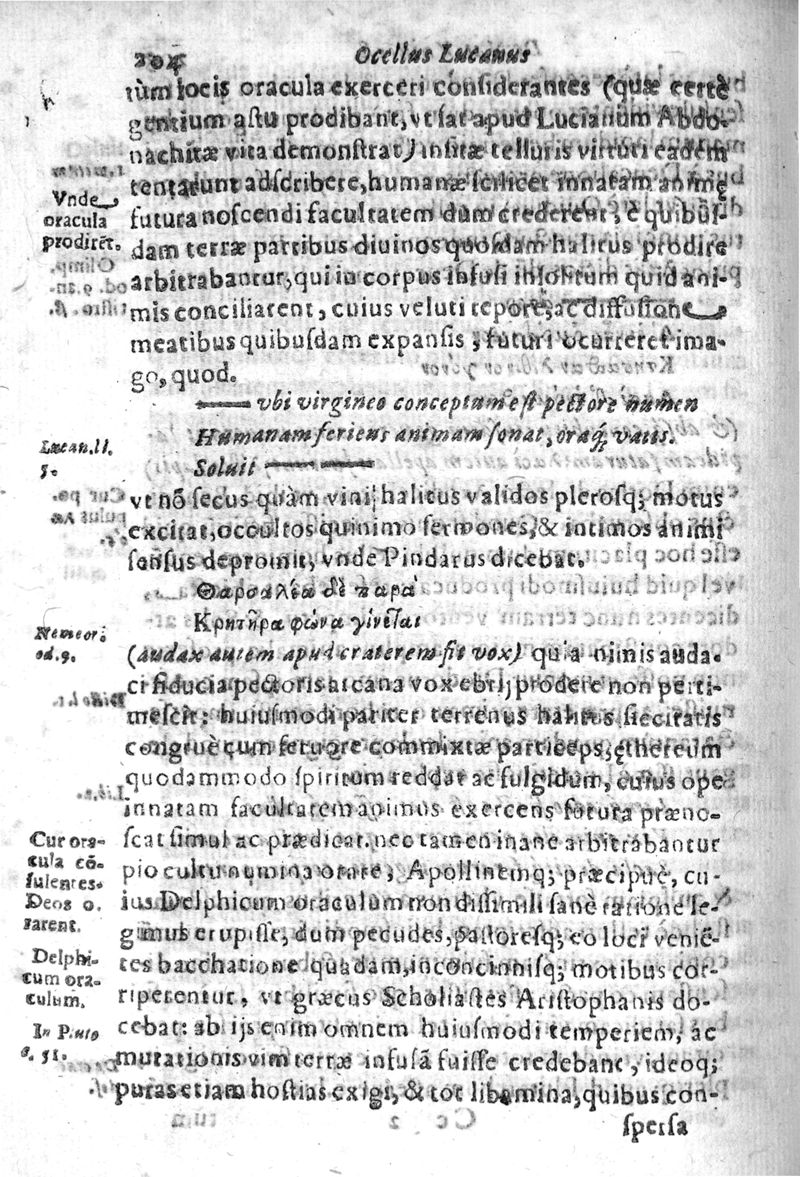 204 Ocellus Lucanus
tùm locis oracula exerceri considerantes (quæ certè
gentium astu prodibant, vt sat apud Lucianum Abdo-
nachitæ vita demonstrat) insitæ telluris virtuti eadem
tentarunt adscribere, humanæ scilicet innatam animę
Vnde
oracula
prodirēt.
futura noscendi facultatem dum crederent, è quibus-
dam terræ partibus diuinos quosdam halitus prodire
arbitrabantur, qui in corpus infusi insolitum quid ani-
mis conciliarent, cuius veluti tepore, ac diffusione
meatibus quibusdam expansis, futuri occurreret ima-
go, quod.
vbi virgineo conceptum est pectore numen
Humanam feriens animam sonat, oraq́; vatis.
Lucan. li.
5.
Soluit
vt nō secus quàm vini halitus validos plerosq; motus
excitat, occultos quinimo sermones, & intimos animi
sensus depromit, vnde Pindarus dicebat.
Θαρσαλέα δὲ παρὰ
Κρητῆρα φωνα γίνεται
Nemeor.
od. 9.
(audax autem apud craterem fit vox) quia nimis auda-
ci fiducia pectoris arcana vox ebrij prodere non perti-
mescit: huiusmodi pariter terrenus halitus siccitatis
congruè cum feruore commixtæ particeps, ęthereum
quodammodo spiritum reddat ac fulgidum, cuius ope
innatam facultatem animus exercens futura præno-
scat simul ac prædicat. nec tamen inane arbitrabantur
Cur ora-
cula cō-
sulentes
Deos o-
rarent.
pio cultu numina orare, Apollinemq; præcipuè, cu-
ius Delphicum oraculum non dissimili sanè ratione le-
gimus erupisse, dum pecudes, pastoresq; eo loci veniē-
Delphi-
cum ora-
culum.
tes bacchatione quadam, inconcinnisq; motibus cor-
riperentur, vt græcus Scholiastes Aristophanis do-
In Pluto
cebat: ab ijs enim omnem huiusmodi temperiem, ac
mutationis vim terræ infusā fuisse credebant, ideoq;
puras etiam hostias exigi, & tot libamina, quibus con-
spersa